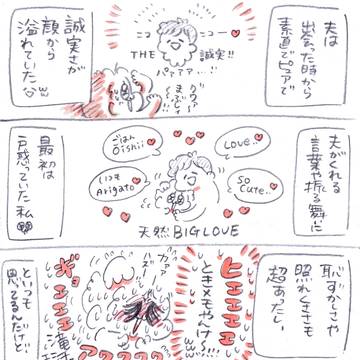 夫は
出会った時から
素直でピュアで
ニコ ニコー
THE 誠実!!
パァァァ...!!
うわ〜
まぶしいっ
誠実さが
顔から
溢れていた
夫がくれる
言葉や振る舞いに
Love..
So
Cute..
ごはん
Oishi!
いつも
Arigato
天然BIG LOVE
最初は
戸惑っていた私
恥ずかしさや
照れくささも
超あったし
ヒエエエエ
ときメモやんけ〜!!!
ギョエエエエ
アワワワ
といつも
思ってるんだけど